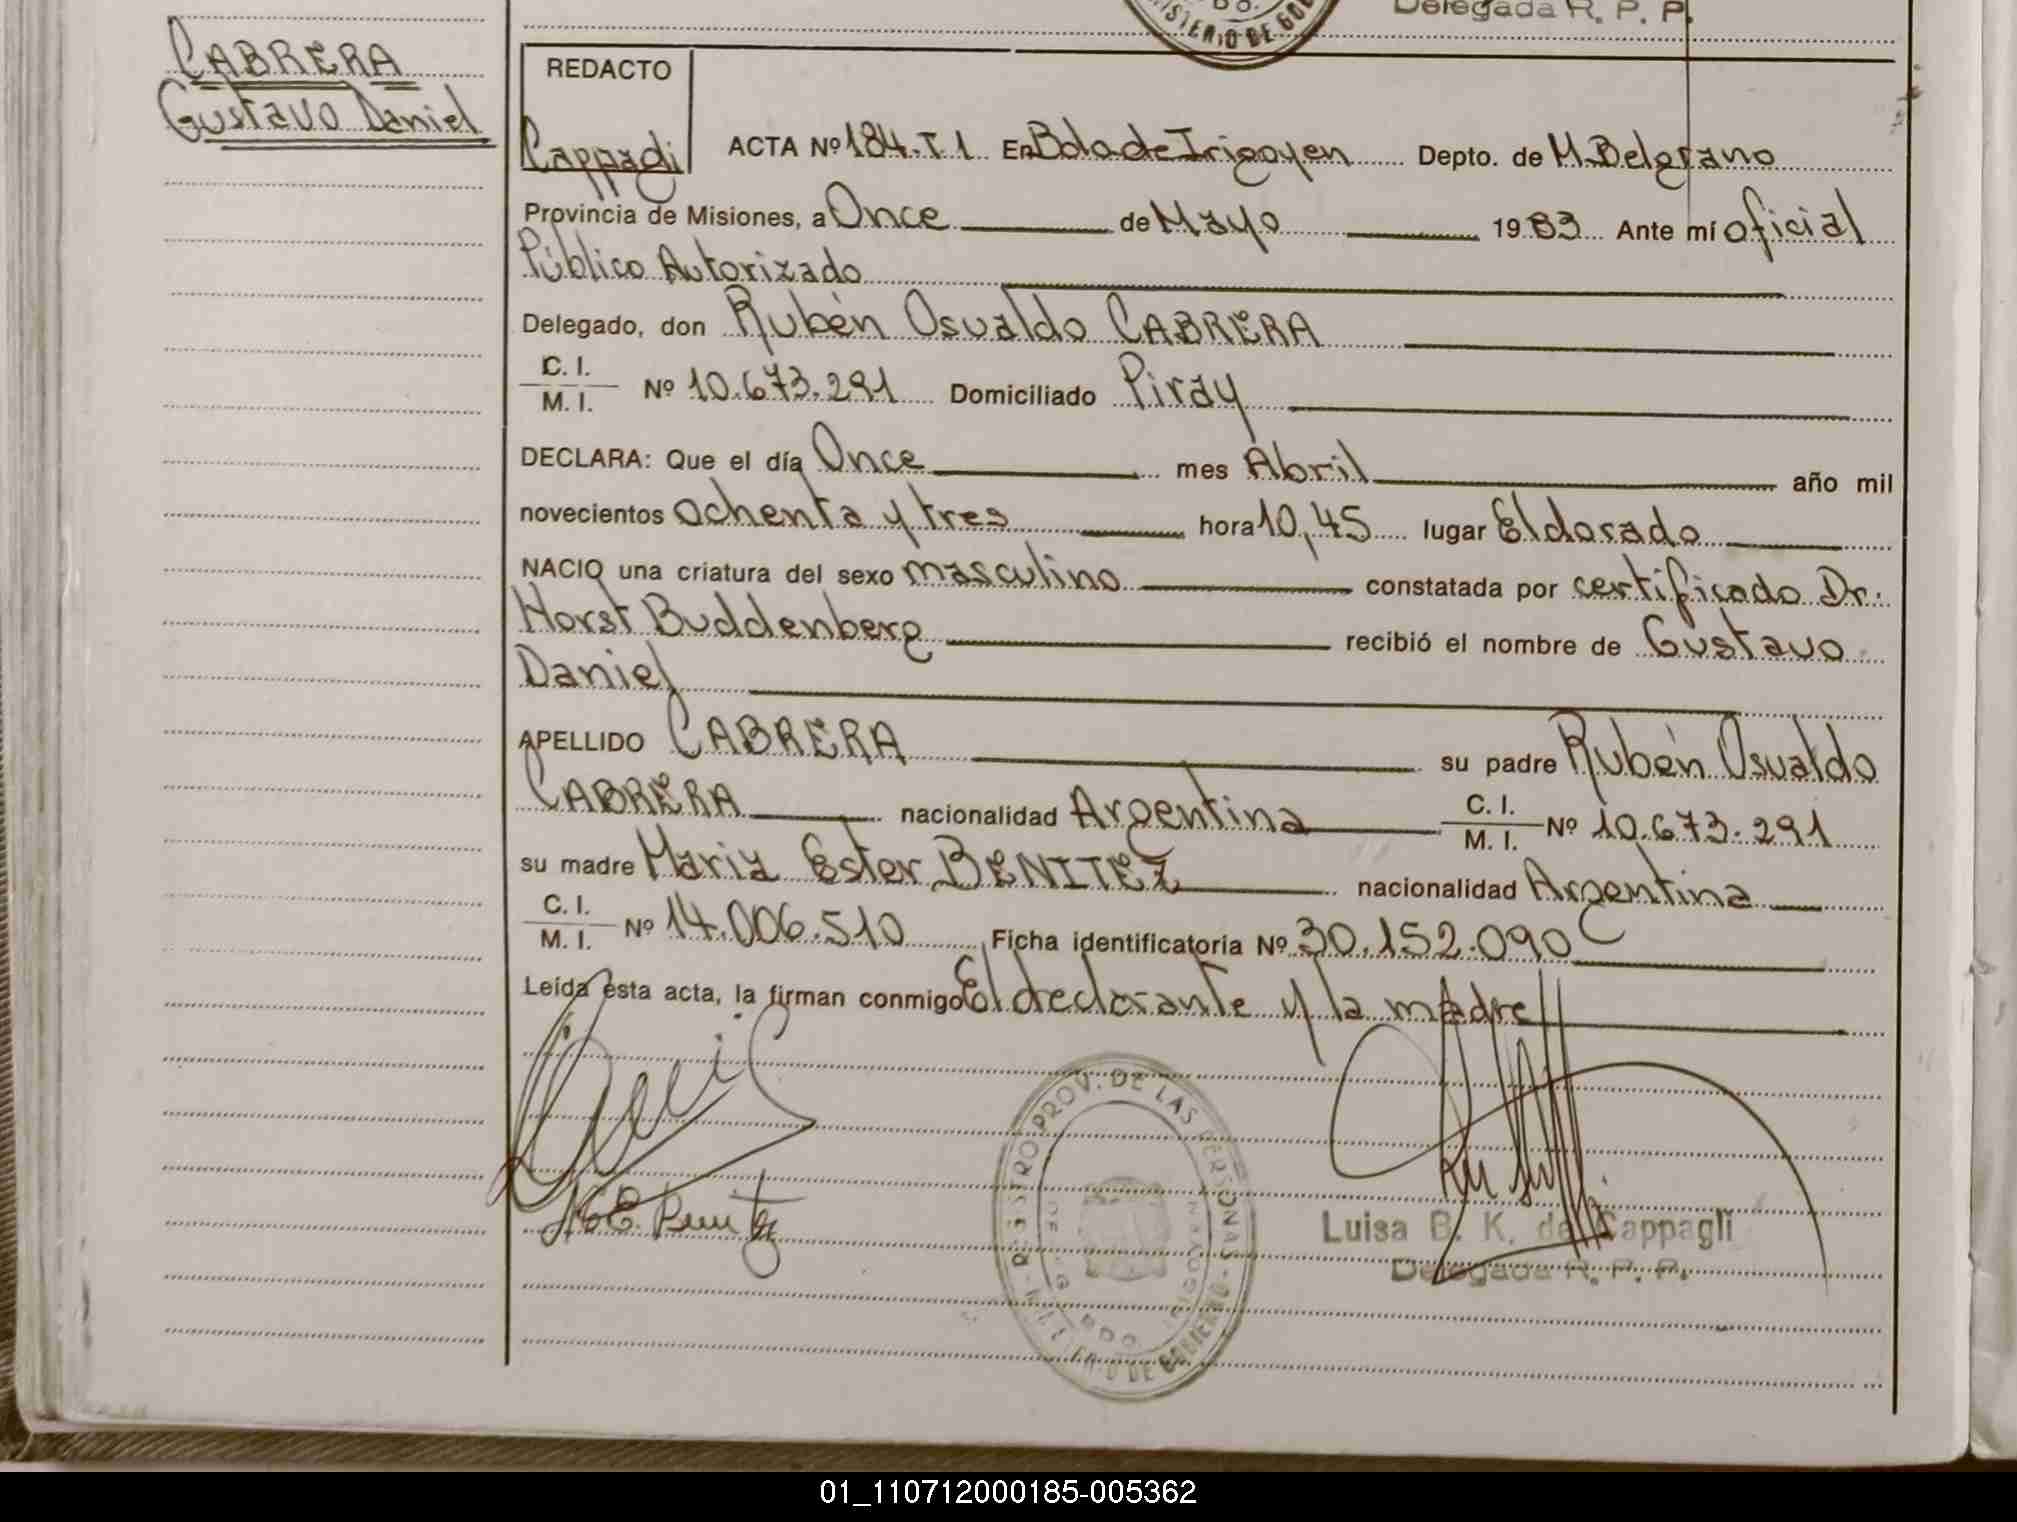 Delegada R. P. P.
MINISTERIO DE GOB
CABRERA
Gustavo Daniel
REDACTO
Cappagli
ACTA Nº 184-T 1 En Bdo de Irigoyen Depto. de M. Belgrano
Provincia de Misiones, a Once de Mayo 1983 Ante mí oficial
Público Autorizado
Delegado, don Rubén Osvaldo CABRERA
C. I.
M. I. Nº 10.673.291 Domiciliado Piray
DECLARA: Que el día Once mes Abril año mil
novecientos ochenta y tres hora 10,45 lugar Eldorado
NACIO una criatura del sexo masculino constatada por certificado Dr.
Horst Buddenberg recibió el nombre de Gustavo
Daniel
APELLIDO CABRERA su padre Rubén Osvaldo
CABRERA nacionalidad Argentina C. I. M. I. Nº 10.673.291
su madre Maria Ester BENITEZ nacionalidad Argentina
C. I.
M. I. Nº 14.006.510 Ficha identificatoria Nº 30.152.090 C
Leída esta acta, la firman conmigo El declarante y la madre
REGISTRO PROV. DE LAS PERSONAS
MINISTERIO DE GOBIERNO
Luisa B. K. de Cappagli
Delegada R. P. P.
01_110712000185-005362